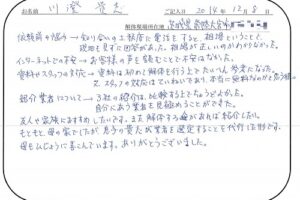 お名前 川澄 貴志 ご記入日 2014年12月8日
解体現場所在地 茨城県常陸大宮市
依頼前の悩み→知り合いの土建屋に電話をすると、相場ということで、
現地も見ずに回答があった。相場が正しいのかわからなかった。
インターネットでの不安→お客様の声を読むことで不安はなかった。
資料やスタッフの対応→資料は初めて解体を行う上でたいへん参考になった。
又、スタッフの対応はていねいであり、本当に無料なのかと思う程。
紹介業者について→3社の紹介は、比較する上でちょうどよかった。
自分にあう業者を見極めることができた。
友人や家族におすすめしたいです。また解体する機があれば紹介したい。
もともと母の家でしたが息子の貴志が業者を選定することを代行した形です。
母もひじょうに喜こんでいます。ありがとうございました。